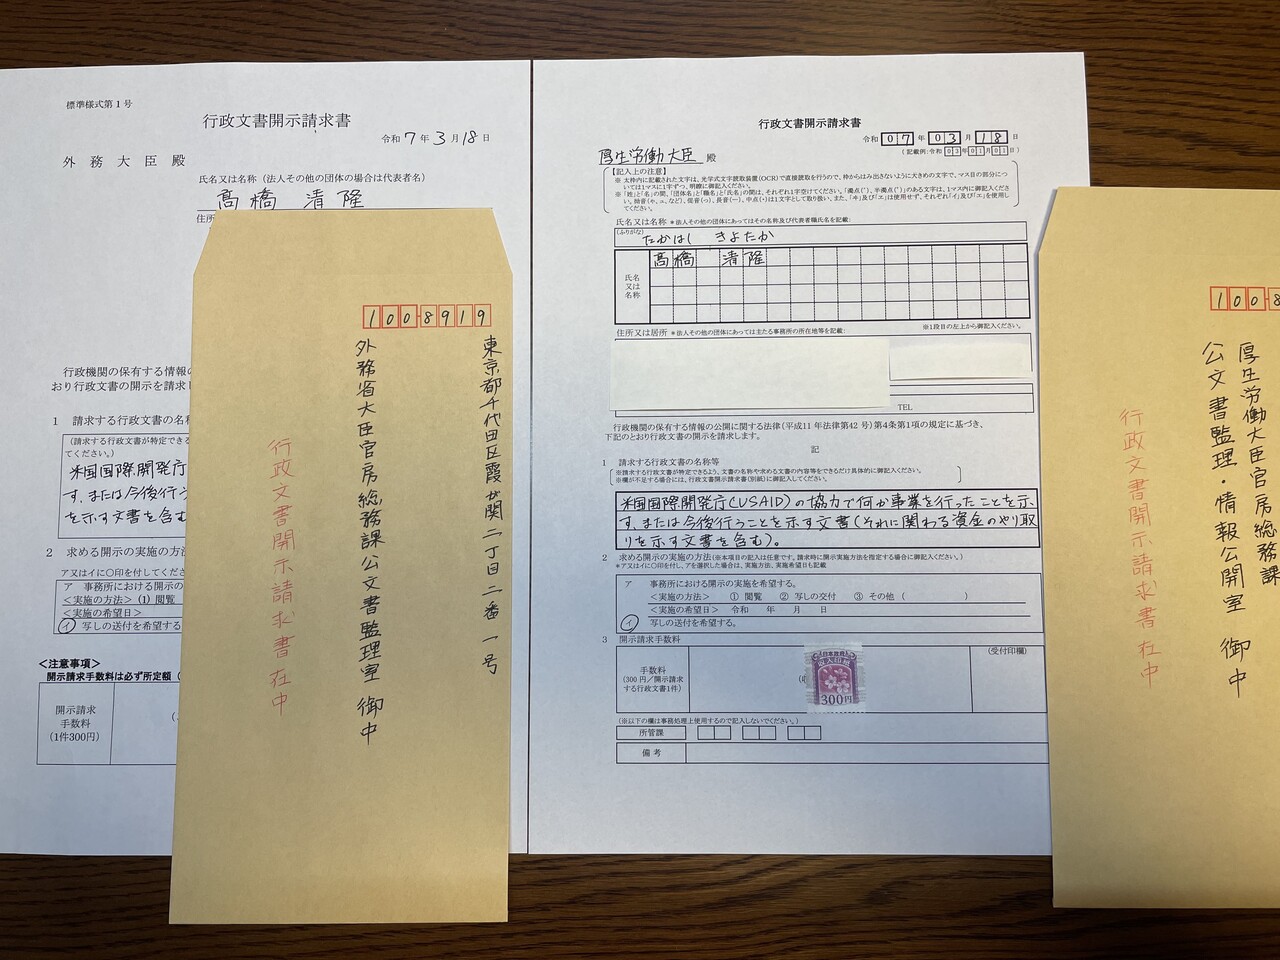 標準様式第1号
行政文書開示請求書
令和7年3月18日
外務大臣殿
氏名又は名称（法人その他の団体の場合は代表者名）
髙橋 清隆
住所
行政機関の保有する情報の
おり行政文書の開示を請求し
1 請求する行政文書の名称
(請求する行政文書が特定できる
てください。)
米国国際開発庁
す、または今後行う
を示す文書を含む
2 求める開示の実施の方法
ア又はイに○印を付してくださ
ア 事務所における開示の
<実施の方法> (1) 閲覧
<実施の希望日>
イ 写しの送付を希望する
<注意事項>
開示請求手数料は必ず所定額（
開示請求
手数料
(1件300円)
1008919
東京都千代田区霞が関二丁目二番一号
外務省大臣官房総務課公文書監理室 御中
行政文書開示請求書在中
行政文書開示請求書
令和07年03月18日
(記載例:令和03年01月01日)
厚生労働大臣 殿
【記入上の注意】
※ 太枠内に記載された文字は、光学式文字読取装置(OCR)で直接読取を行うので、枠からはみ出さないように大きめの文字で、マス目の部分については1マスに1字ずつ、明瞭に御記入ください。
氏名又は名称 *法人その他の団体にあってはその名称及び代表者職氏名を記載:
(ふりがな) たかはし きよたか
氏名
又は
名称
髙橋 清隆
住所又は居所 *法人その他の団体にあっては主たる事務所の所在地等を記載:
※1段目の左上から御記入ください。
TEL
行政機関の保有する情報の公開に関する法律(平成11年法律第42号)第4条第1項の規定に基づき、
下記のとおり行政文書の開示を請求します。
記
1 請求する行政文書の名称等
※請求する行政文書が特定できるよう、文書の名称や求める文書の内容等をできるだけ具体的に御記入ください。
※欄が不足する場合には、行政文書開示請求書(別紙)に御記入してください。
米国国際開発庁(USAID)の協力で何か事業を行ったことを示
す、または今後行うことを示す文書(それに関わる資金のやり取
りを示す文書を含む)。
2 求める開示の実施の方法(※本項目の記入は任意です。請求時に開示実施方法を指定する場合に御記入ください。)
*ア又はイに○印を付し、アを選択した場合は、実施方法、実施希望日も記載
ア 事務所における開示の実施を希望する。
<実施の方法> ① 閲覧 ② 写しの交付 ③ その他 ( )
<実施の希望日> 令和 年 月 日
イ 写しの送付を希望する。
3 開示請求手数料
手数料
(300円/開示請求
する行政文書1件)
日本政府
収入印紙
300円
(受付印欄)
(※以下の欄は事務処理上使用するので記入しないでください。)
所管課
備考
1008
厚生労働大臣官房総務課
公文書監理・情報公開室 御中
行政文書開示請求書在中